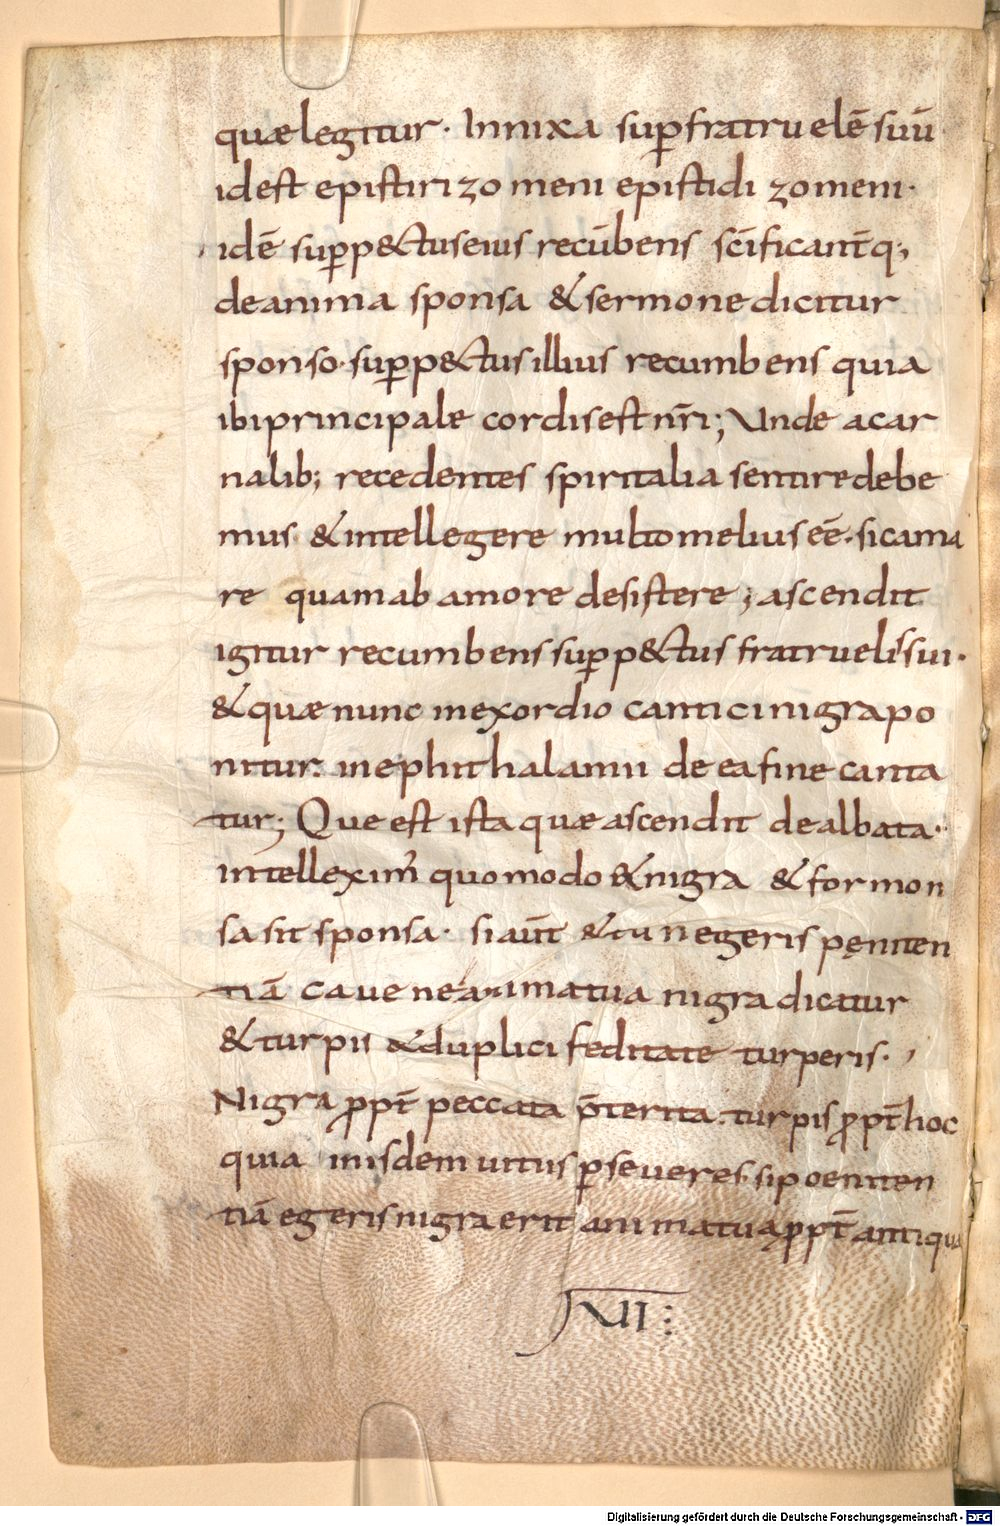 quælegitur· Innixa sup̄fratruelē suū
idest epistirizomeni epistidizomeni·
idē sup̄p&ctuseius recūbens sc̄ificant̄q;
deanima sponsa &sermonedicitur
sponso· sup̄p&ctusillius recumbens quia
ibiprincipale cordisestnr̄i; Unde acar
nalib; recedentes spiritalia sentiredebe
mus· &intellegere multomeliuseē· sicama
re quamab amore desistere; ascendit
igitur recumbenssup̄p&ctus fratruelissui·
&quænunc inexordio canticinigrapo
nitur· inephithalamii deeafine canta
tur; Que est istaquæascendit dealbata·
intelleximꝰ quomodo&nigra &formon
sasitsponsa· siaūt &tunegeris pęniten
tiā cavene animatua nigradicatur
&turpis &duplici feditate turperis·,
Nigra ꝓpt̄ peccata p̄terita· turpis ꝓpt̄hoc
quia iniisdem vitiis ꝑseveres· sipoeniten
tiā egerisnigraerit animatua ꝓpt̄ antiqua
VI:
Digitalisierung gefördert durch die Deutsche Forschungsgemeinschaft - DFG